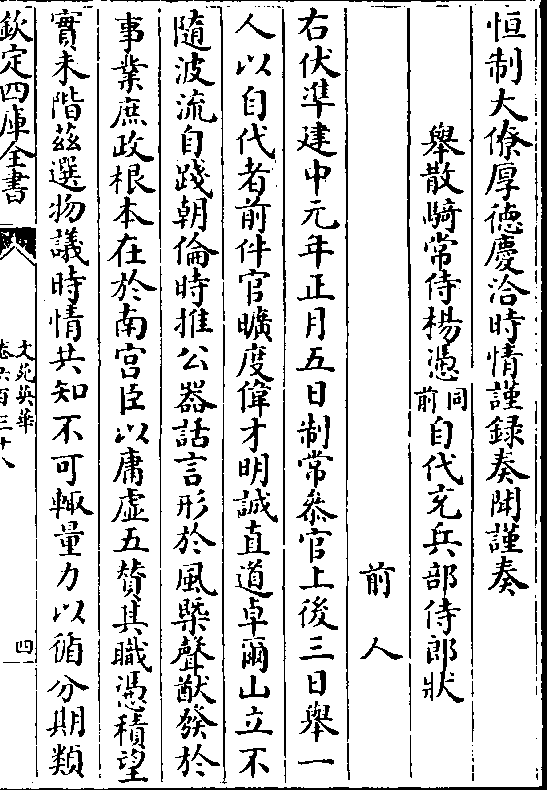 恒制大僚厚德慶洽時情謹録奏聞謹奏
舉散騎常侍楊憑同前自代充兵部侍郎狀
前人
右伏準建中元年正月五日制常叅官上後三日舉一
人以自代者前件官曠度偉才明誠直道卓爾山立不
隨波流自踐朝倫時推公器話言形於風槩聲猷發於
事業庶政根本在於南宫臣以庸虚五贊其職憑積望
實未階兹選物議時情共知不可輙量力以循分期類
欽定四庫全書
文苑英華
卷六百三十八
四